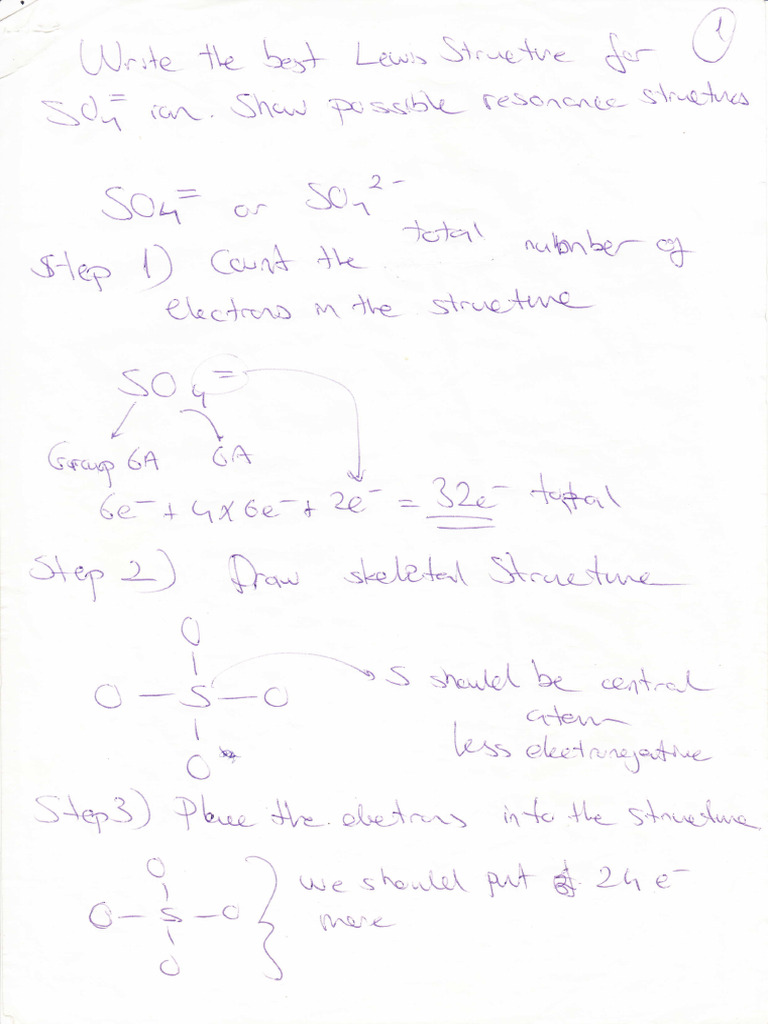 1
Write the best Lewis Structure for
SO₄⁼ ion. Show possible resonance structures
SO₄⁼ or SO₄²⁻
Step 1) Count the total number of
electrons in the structure
SO₄⁼
Group 6A 6A
6e⁻ + 4x6e⁻ + 2e⁻ = 32e⁻ total
Step 2) Draw skeletal Structure
O
O — S — O
O
S should be central
atom
less electronegative
Step 3) Place the electrons into the structure
O
O — S — O
O
we should put 24 e⁻
more